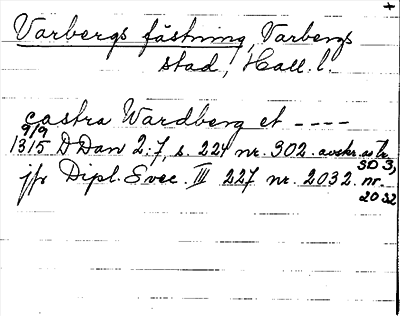 +
Varbergs fästning, Varbergs
stad, Hall. l.
castra Wardberg et ----
9/9
1315 DDan 2:7, s. 224 nr. 302. avskr.
SD 3,
jfr Dipl. Svec. III 227 nr. 2032. nr.
2032